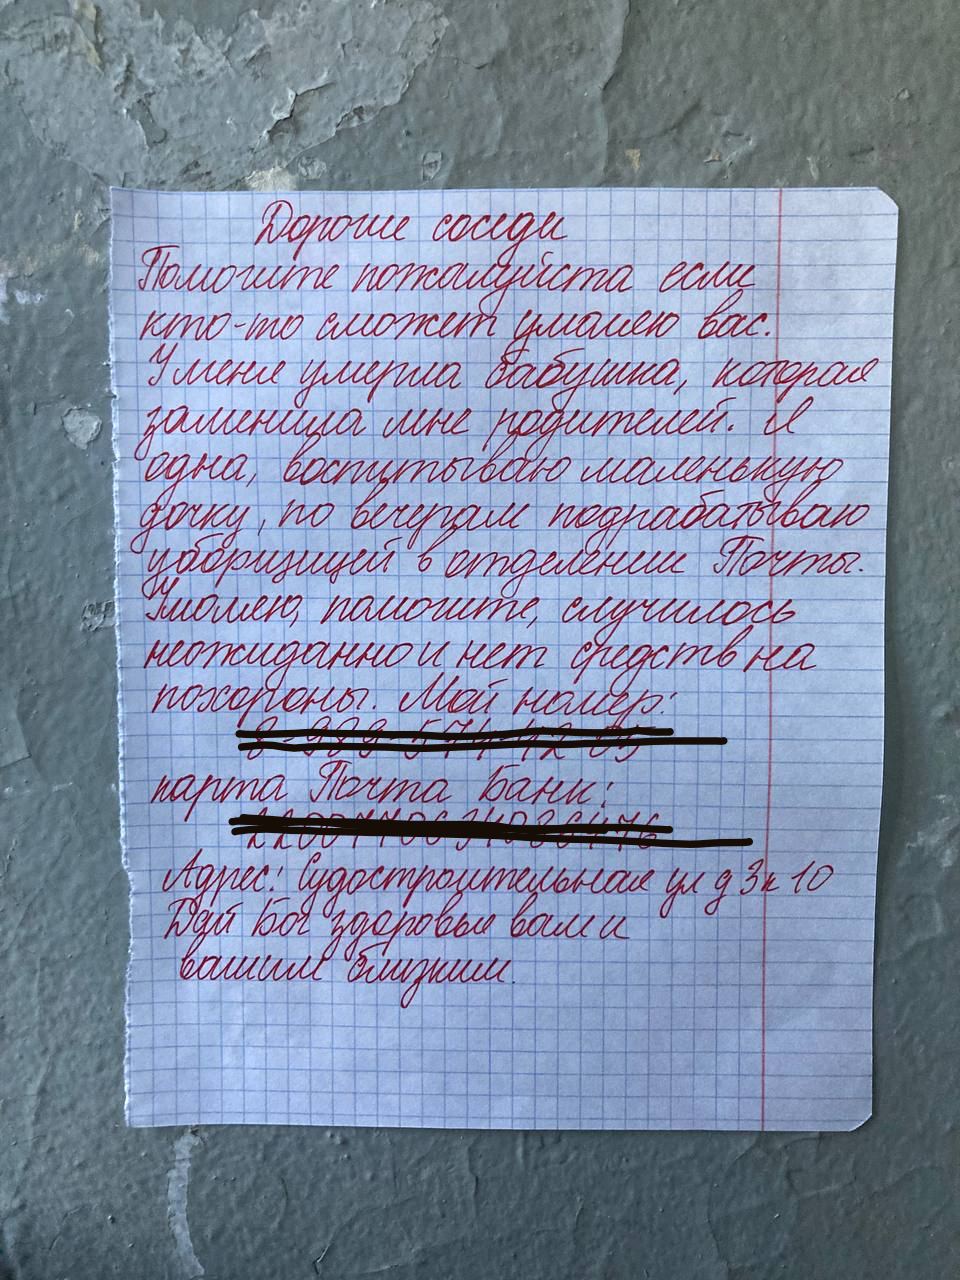 Дорогие соседи
Помогите пожалуйста если
кто-то сможет умоляю вас.
У меня умерла бабушка, которая
заменила мне родителей. Я
одна, воспитываю маленькую
дочку, по вечерам подрабатываю
уборщицей в отделении Почты.
Умоляю, помогите, случилось
неожиданно и нет средств на
похороны. Мой номер:
карта Почта Банк:
Адрес: Судостроительная ул д 3 к 10
Дай Бог здоровья вам и
вашим близким.